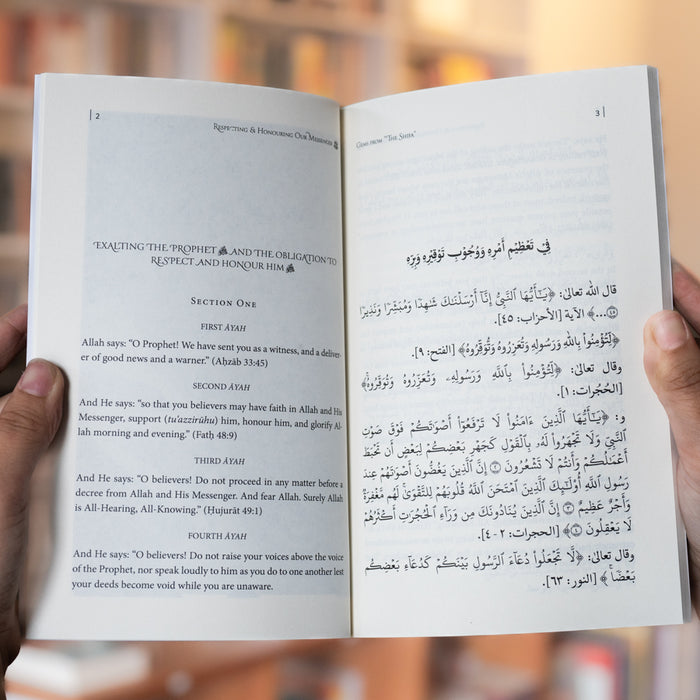 2
Respecting & Honouring Our Messenger ﷺ
Exalting the Prophet ﷺ and the Obligation to
Respect and Honour Him ﷺ
Section One
FIRST ĀYAH
Allah says: “O Prophet! We have sent you as a witness, and a deliver-
er of good news and a warner.” (Aḥzāb 33:45)
SECOND ĀYAH
And He says: “so that you believers may have faith in Allah and His
Messenger, support (tu'azzirūhu) him, honour him, and glorify Al-
lah morning and evening.” (Fatḥ 48:9)
THIRD ĀYAH
And He says: “O believers! Do not proceed in any matter before a
decree from Allah and His Messenger. And fear Allah. Surely Allah
is All-Hearing, All-Knowing.” (Ḥujurāt 49:1)
FOURTH ĀYAH
And He says: “O believers! Do not raise your voices above the voice
of the Prophet, nor speak loudly to him as you do to one another lest
your deeds become void while you are unaware.
3
Gems from “The Shifa”
فِي تَعْظِيْمِ أَمْرِهِ وَوُجُوْبِ تَوْقِيْرِهِ وَبِرِّهِ
قال الله تعالى: ﴿يَٰٓأَيُّهَا ٱلنَّبِيُّ إِنَّآ أَرْسَلْنَٰكَ شَٰهِدًا وَمُبَشِّرًا وَنَذِيرًا
٤٥...﴾ الآية [الأحزاب: ٤٥].
﴿لِتُؤْمِنُواْ بِٱللَّهِ وَرَسُولِهِ وَتُعَزِّرُوهُ وَتُوَقِّرُوهُ﴾ [الفتح: ٩].
وقال تعالى: ﴿لِتُؤْمِنُواْ بِٱللَّهِ وَرَسُولِهِۦ وَتُعَزِّرُوهُ وَتُوَقِّرُوهُ﴾
[الحُجرات: ١].
و: ﴿يَٰٓأَيُّهَا ٱلَّذِينَ ءَامَنُواْ لَا تَرْفَعُوٓاْ أَصْوَٰتَكُمْ فَوْقَ صَوْتِ
ٱلنَّبِيِّ وَلَا تَجْهَرُواْ لَهُۥ بِٱلْقَوْلِ كَجَهْرِ بَعْضِكُمْ لِبَعْضٍ أَن تَحْبَطَ
أَعْمَٰلُكُمْ وَأَنتُمْ لَا تَشْعُرُونَ ٢ إِنَّ ٱلَّذِينَ يَغُضُّونَ أَصْوَٰتَهُمْ عِندَ
رَسُولِ ٱللَّهِ أُوْلَٰٓئِكَ ٱلَّذِينَ ٱمْتَحَنَ ٱللَّهُ قُلُوبَهُمْ لِلتَّقْوَىٰۚ لَهُم مَّغْفِرَةٌ
وَأَجْرٌ عَظِيمٌ ٣ إِنَّ ٱلَّذِينَ يُنَادُونَكَ مِن وَرَآءِ ٱلْحُجُرَٰتِ أَكْثَرُهُمْ
لَا يَعْقِلُونَ ٤﴾ [الحجرات: ٢-٤].
وقال تعالى: ﴿لَّا تَجْعَلُواْ دُعَآءَ ٱلرَّسُولِ بَيْنَكُمْ كَدُعَآءِ بَعْضِكُم
بَعْضًاۚ﴾ [النور: ٦٣].